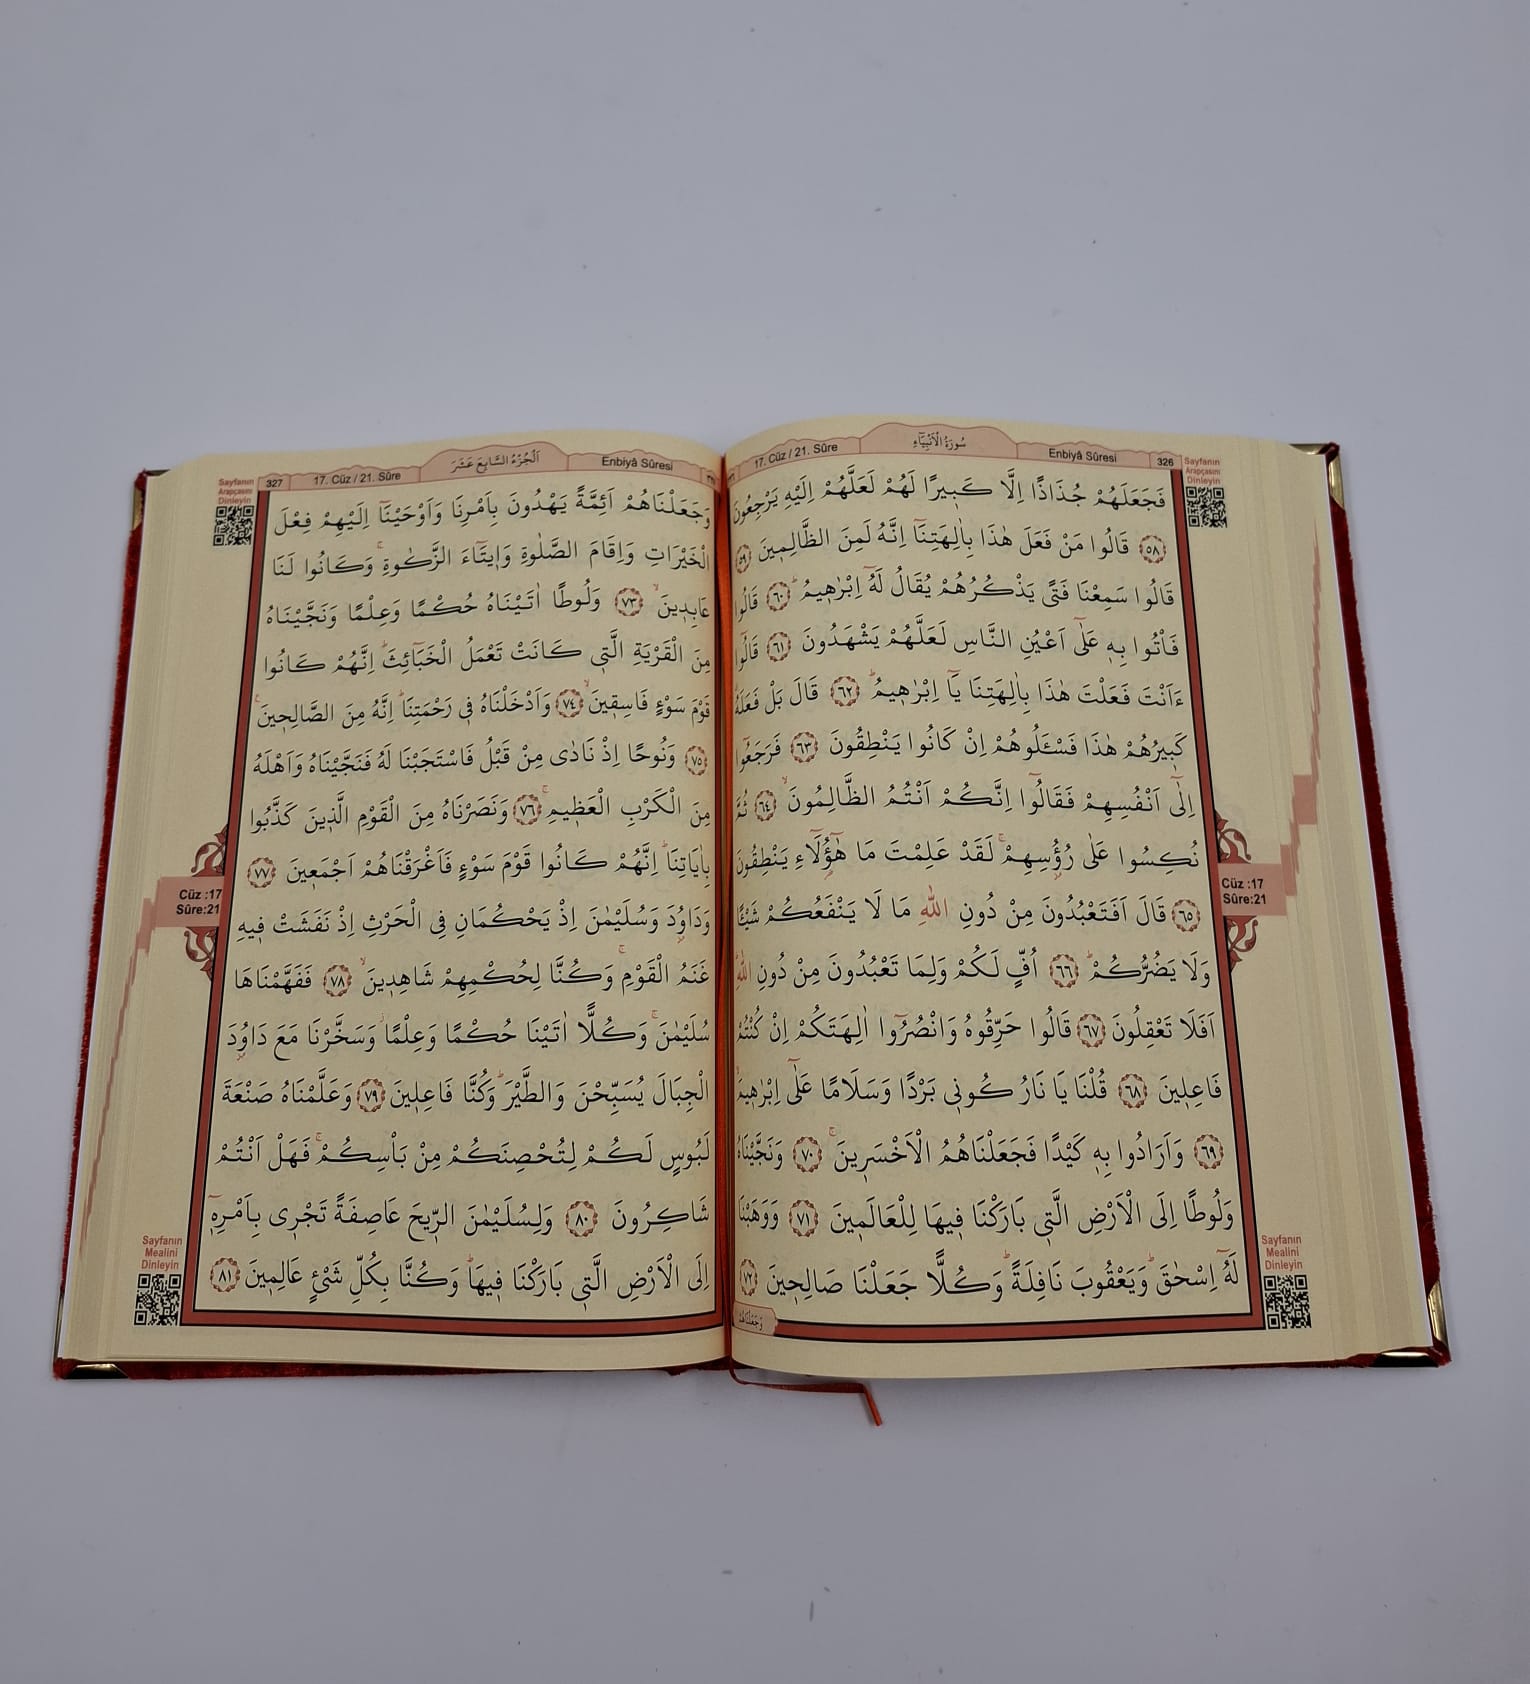 سُورَةُ الْاَنْبِيَٓاءِ
17. Cüz / 21. Sûre
Enbiyâ Sûresi
326
Sayfanın
Arapçasını
Dinleyin
فَجَعَلَهُمْ جُذَاذًا اِلَّا كَبٖيرًا لَهُمْ لَعَلَّهُمْ اِلَيْهِ يَرْجِعُونَ
﴿٥٨﴾ قَالُوا مَنْ فَعَلَ هٰذَا بِاٰلِهَتِنَٓا اِنَّهُ لَمِنَ الظَّالِمٖينَ ﴿٥٩﴾
قَالُوا سَمِعْنَا فَتًى يَذْكُرُهُمْ يُقَالُ لَهُٓ اِبْرٰهٖيمُؕ ﴿٦٠﴾ قَالُوا
فَأْتُوا بِهٖ عَلٰٓى اَعْيُنِ النَّاسِ لَعَلَّهُمْ يَشْهَدُونَ ﴿٦١﴾ قَالُٓوا
ءَاَنْتَ فَعَلْتَ هٰذَا بِاٰلِهَتِنَا يَٓا اِبْرٰهٖيمُؕ ﴿٦٢﴾ قَالَ بَلْ فَعَلَهُۗ
كَبٖيرُهُمْ هٰذَا فَسْـَٔلُوهُمْ اِنْ كَانُوا يَنْطِقُونَ ﴿٦٣﴾ فَرَجَعُٓوا
اِلٰٓى اَنْفُسِهِمْ فَقَالُٓوا اِنَّكُمْ اَنْتُمُ الظَّالِمُونَۙ ﴿٦٤﴾ ثُمَّ
نُكِسُوا عَلٰى رُؤُسِهِمْۚ لَقَدْ عَلِمْتَ مَا هٰٓؤُ۬لَٓاءِ يَنْطِقُونَ
﴿٦٥﴾ قَالَ اَفَتَعْبُدُونَ مِنْ دُونِ اللّٰهِ مَا لَا يَنْفَعُكُمْ شَيْـًٔا
وَلَا يَضُرُّكُمْؕ ﴿٦٦﴾ اُفٍّ لَكُمْ وَلِمَا تَعْبُدُونَ مِنْ دُونِ اللّٰهِؕ
اَفَلَا تَعْقِلُونَ ﴿٦٧﴾ قَالُوا حَرِّقُوهُ وَانْصُرُٓوا اٰلِهَتَكُمْ اِنْ كُنْتُمْ
فَاعِلٖينَ ﴿٦٨﴾ قُلْنَا يَا نَارُ كُونٖى بَرْدًا وَسَلَامًا عَلٰٓى اِبْرٰهٖيمَۙ
﴿٦٩﴾ وَاَرَادُوا بِهٖ كَيْدًا فَجَعَلْنَاهُمُ الْاَخْسَرٖينَۚ ﴿٧٠﴾ وَنَجَّيْنَاهُ
وَلُوطًا اِلَى الْاَرْضِ الَّتٖى بَارَكْنَا فٖيهَا لِلْعَالَمٖينَ ﴿٧١﴾ وَوَهَبْنَا
لَهُٓ اِسْحٰقَؕ وَيَعْقُوبَ نَافِلَةًؕ وَكُلًّا جَعَلْنَا صَالِحٖينَ ﴿٧٢﴾
وَجَعَلْنَاهُمْ
Cüz :17
Sûre:21
Sayfanın
Mealini
Dinleyin
327
17. Cüz / 21. Sûre
اَلْجُزْءُ السَّابِعَ عَشَرَ
Enbiyâ Sûresi
Sayfanın
Arapçasını
Dinleyin
وَجَعَلْنَاهُمْ اَئِمَّةً يَهْدُونَ بِاَمْرِنَا وَاَوْحَيْنَٓا اِلَيْهِمْ فِعْلَ
الْخَيْرَاتِ وَاِقَامَ الصَّلٰوةِ وَاٖيتَٓاءَ الزَّكٰوةِۚ وَكَانُوا لَنَا
عَابِدٖينَۙ ﴿٧٣﴾ وَلُوطًا اٰتَيْنَاهُ حُكْمًا وَعِلْمًا وَنَجَّيْنَاهُ
مِنَ الْقَرْيَةِ الَّتٖى كَانَتْ تَعْمَلُ الْخَبَٓائِثَؕ اِنَّهُمْ كَانُوا
قَوْمَ سَوْءٍ فَاسِقٖينَۙ ﴿٧٤﴾ وَاَدْخَلْنَاهُ فٖى رَحْمَتِنَاؕ اِنَّهُ مِنَ الصَّالِحٖينَۚ
﴿٧٥﴾ وَنُوحًا اِذْ نَادٰى مِنْ قَبْلُ فَاسْتَجَبْنَا لَهُ فَنَجَّيْنَاهُ وَاَهْلَهُ
مِنَ الْكَرْبِ الْعَظٖيمِۚ ﴿٧٦﴾ وَنَصَرْنَاهُ مِنَ الْقَوْمِ الَّذٖينَ كَذَّبُوا
بِاٰيَاتِنَاؕ اِنَّهُمْ كَانُوا قَوْمَ سَوْءٍ فَاَغْرَقْنَاهُمْ اَجْمَعٖينَ ﴿٧٧﴾
وَدَاوُ۫دَ وَسُلَيْمٰنَ اِذْ يَحْكُمَانِ فِى الْحَرْثِ اِذْ نَفَشَتْ فٖيهِ
غَنَمُ الْقَوْمِۚ وَكُنَّا لِحُكْمِهِمْ شَاهِدٖينَۙ ﴿٧٨﴾ فَفَهَّمْنَاهَا
سُلَيْمٰنَۚ وَكُلًّا اٰتَيْنَا حُكْمًا وَعِلْمًاؗ وَسَخَّرْنَا مَعَ دَاوُ۫دَ
الْجِبَالَ يُسَبِّحْنَ وَالطَّيْرَؕ وَكُنَّا فَاعِلٖينَ ﴿٧٩﴾ وَعَلَّمْنَاهُ صَنْعَةَ
لَبُوسٍ لَكُمْ لِتُحْصِنَكُمْ مِنْ بَأْسِكُمْۚ فَهَلْ اَنْتُمْ
شَاكِرُونَ ﴿٨٠﴾ وَلِسُلَيْمٰنَ الرّٖيحَ عَاصِفَةً تَجْرٖى بِاَمْرِهٖٓ
اِلَى الْاَرْضِ الَّتٖى بَارَكْنَا فٖيهَاؕ وَكُنَّا بِكُلِّ شَىْءٍ عَالِمٖينَ ﴿٨١﴾
Cüz :17
Sûre:21
Sayfanın
Mealini
Dinleyin